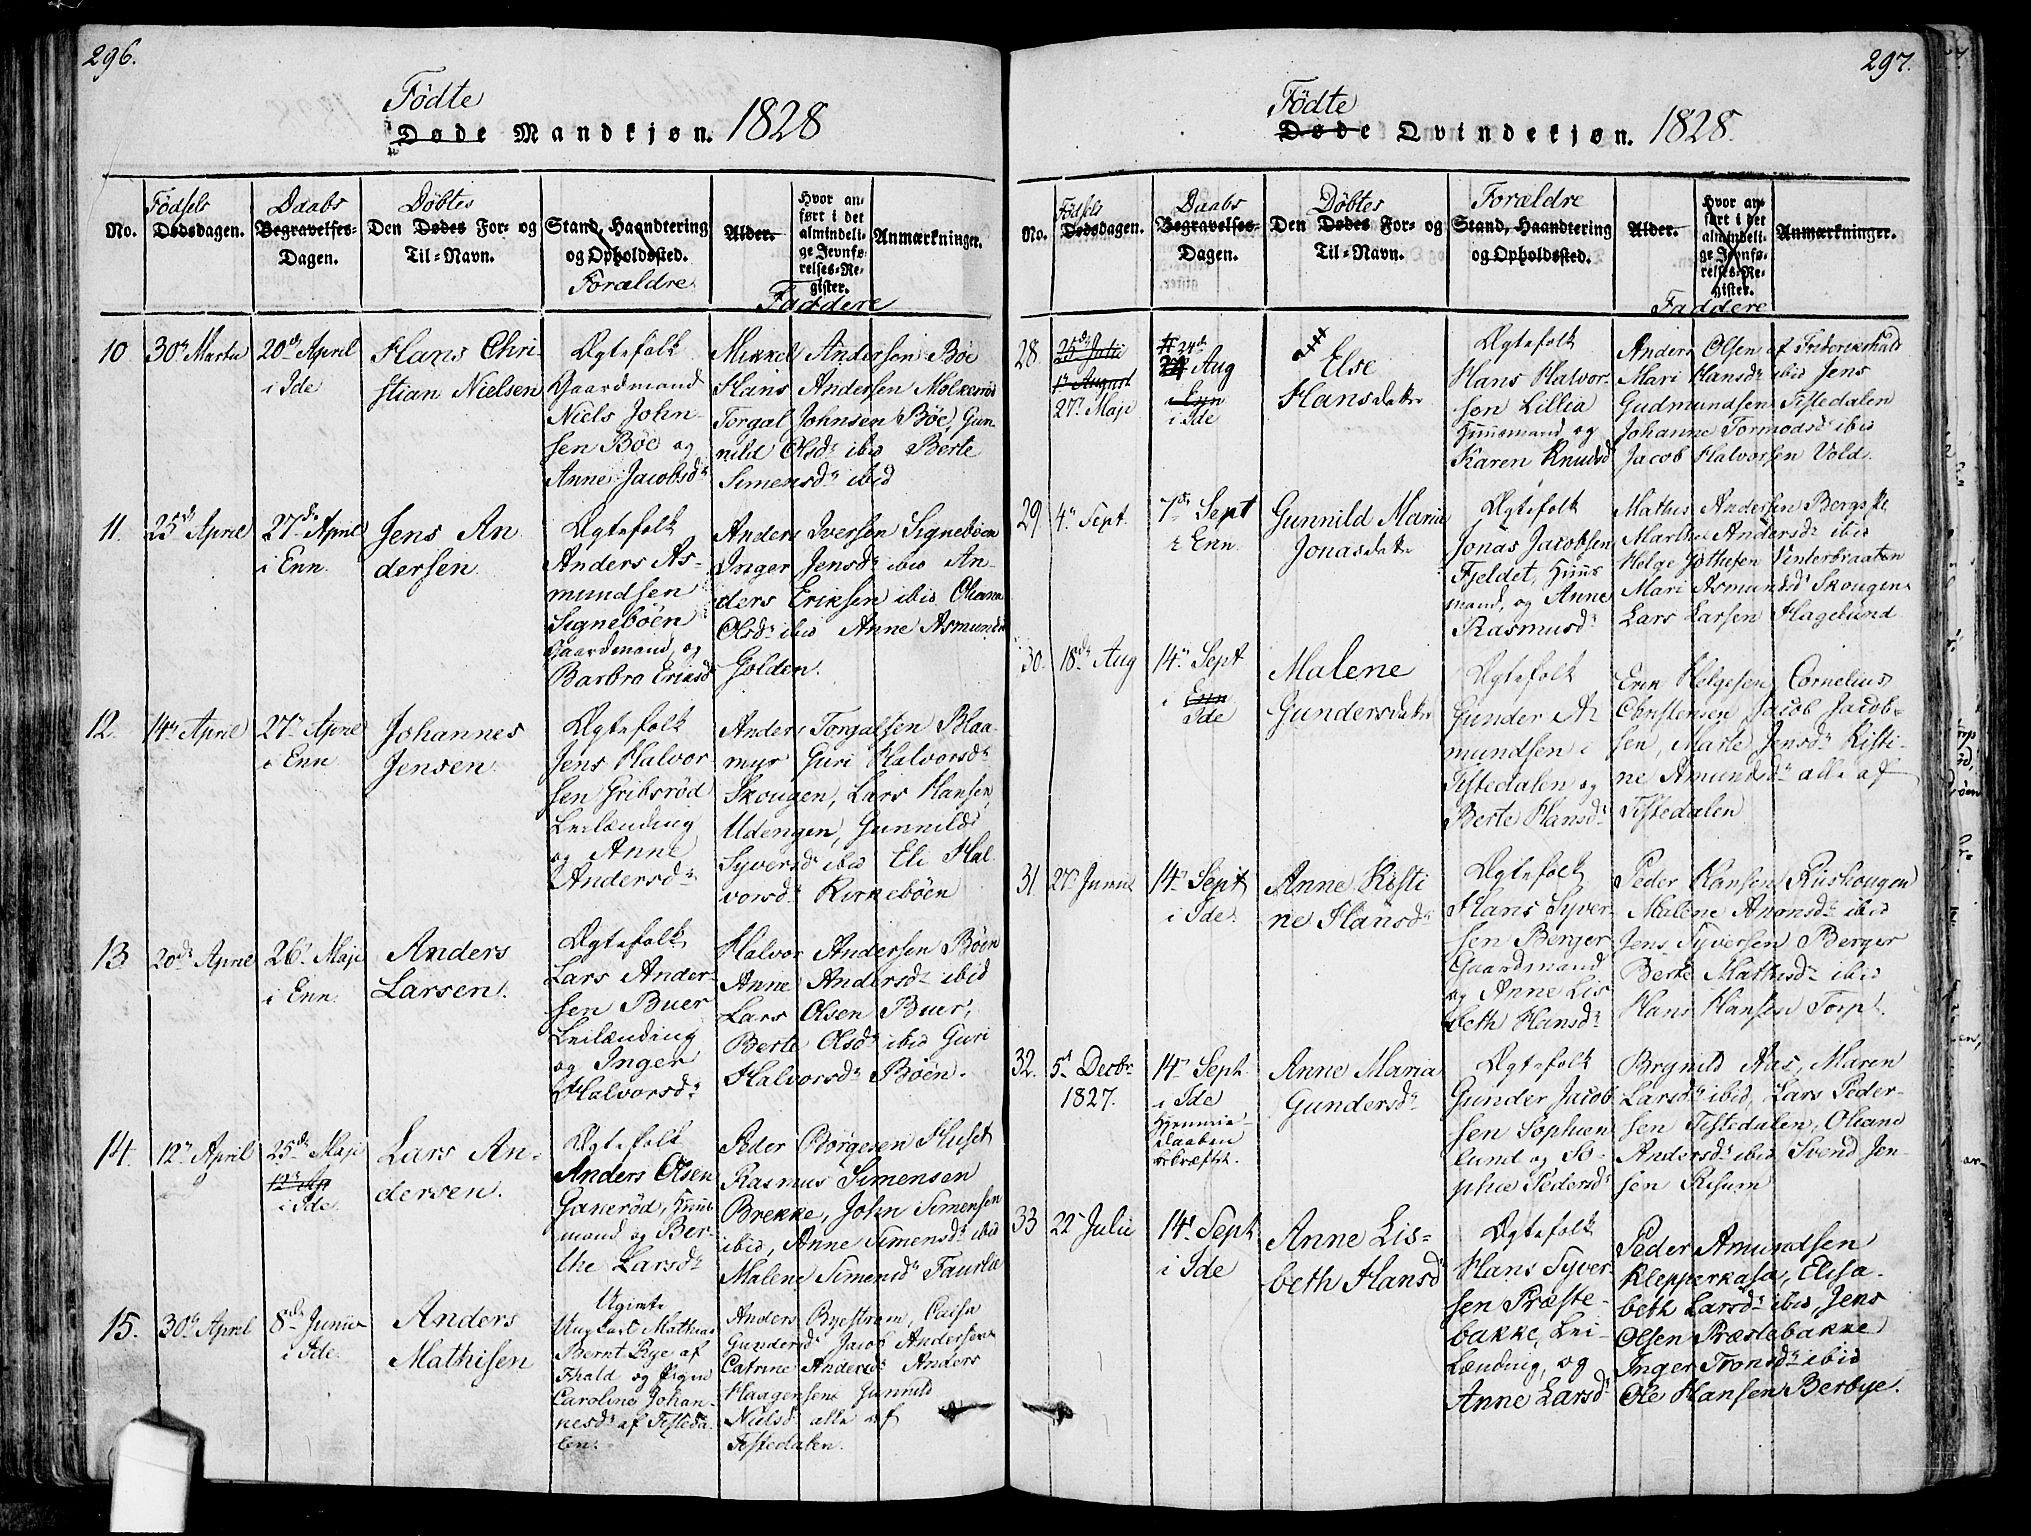 296.
Fødte
Døde Mandkjøn. 1828
Fødsels Daabs Døbtes
No. Dødsdagen. Begravelses-Dagen. Den Dødes For- og Til-Navn. Stand, Haandtering og Opholdssted. Alder. Hvor anført i det almindelige Jevnførelses-Register. Anmærkninger.
Forældre Faddere
10 30te Martz 20de April i Ide
Hans Christian Nielsen
Ægtefolk
Gaardmand
Niels John-
sen Böe og
Anne Jacobsdr
Mikkel Andersen Böe
Hans Andersen Molkerød
Torgal Johnsen Böe, Gun-
nild Olsdr ibid Berte
Simensdr ibid
11. 25de April 27de April i Enn
Jens An
dersen
Ægtefolk
Anders As-
mundsen
Signeböen
Gaardmand, og
Barbro Eriksdr
Anders Iversen Signeböen
Inger Jensdr ibid An-
ders Eriksen ibid Oleana
Olsdr ibid Anne Asmunds
Golden.
12. 14de April 27de April i Enn
Johannes
Jensen
Ægtefolk
Jens Halvor
sen Gribsrød
Leilænding
og Anne
Andersdr
Anders Torgalsen Blaa-
myr Guri Halvorsdr
Skougen, Lars Hansen
Udengen, Gunnild
Syversdr ibid Eli Hal-
vorsdr Kirkeböen
13 20de April 26de Maji i Enn.
Anders
Larsen.
Ægtefolk
Lars Ander-
sen Buer
Leilænding
og Inger
Halvorsdr
Halvor Andersen Böen
Anne Andersdr ibid
Lars Olsen Buer,
Berte Olsdr ibid Guri
Halvorsdr Böen.
14. 12te April 25de Maji i Ide
Lars An-
dersen.
Ægtefolk
Anders Olsen
Ganerød, Huus
mand og Ber-
the Larsdr
Peder Borgesen Huset
Rasmus Simensen
Brekke, John Simensen
ibid, Anne Simensdr ibid
Malene Simensdr
15. 30te April 8de Junii i Ide.
Anders
Mathisen
Ugivte
Ungkarl Mathias
Bernt Bye af
Fhald og Pigen
Caroline Johan-
nesdr af Tisteda-
len.
Anders Byestrøm, Caisa
Gundersdr Jacob Andersen
Catrine Andersdr Anders
Haagensen Gunnild
Nielsdr alle af
Tistedalen.
297.
Fødte
Døde Qvindekjøn. 1828.
Fødsels Daabs Døbtes Forældre
No. Dødsdagen. Begravelses-Dagen. Den Dødes For- og Til-Navn. Stand, Haandtering og Opholdssted. Alder. Hvor anført i det almindelige Jevnførelses-Register. Anmærkninger.
Faddere
28. 25de Julii
17 August
27de Maji
24de Aug
i Enn
i Ide
Else
Hansdatter
Ægtefolk
Hans Halvor-
sen Lillia
Huusmand og
Karen Knudsdr
Anders Olsen af Friderikshald
Mari Hansdr ibid Jens
Gudmundsen Tistedalen
Johanne Tormodsdr ibid
Jacob Halvorsen Vold.
29 4de Sept. 7de Sept i Enn.
Gunnild Maria
Jonasdatter
Ægtefolk
Jonas Jacobsen
Fjeldet, Huus
mand, og Anne
Rasmusdr
Mathis Andersen
Marthe Andersdr ibid
Helge Vinterbraaten
Mari Asmundsdr Skougen
Lars Larsen Hagelund
30. 18de Aug 14de Sept
i Enn
Ide
Malene
Gundersdatter
Ægtefolk
Gunder A-
mundsen i
Tistedalen og
Berte Hansdr
Erik Helgesen Cornelius
Christensen Jacob Jacob-
sen, Marte Jensdr Kisti-
ne Amundsdr alle af
Tistedalen
31. 27de Junii 14de Sept i Ide.
Anne Kisti
ne Hansdr
Ægtefolk
Hans Syver-
sen Berger
Gaardmand
og Anne Lis
beth Hansdr
Peder Hansen Riiskougen
Malene Aronsdr ibid
Jens Syversen Berger
Berte Mathisdr ibid
Hans Hansen Torp.
32. 5te Decbr 1827. 14de Sept. i Ide
Hjemme
daaben
bekræftet.
Anne Maria
Gundersdr
Ægtefolk
Gunder Jacob
sen Sophien
lund og So-
phie Pedersdr
Brynild Aas, Maren
Larsdr ibid, Lars Peder-
sen Tistedalen, Oleane
Andersdr ibid Svend Jen-
sen Risum
33 22de Julii 14de Sept i Ide
Anne Lis-
beth Hansdr
Ægtefolk
Hans Syver
sen Præste-
bakke, Lei-
lænding, og
Anne Larsdr
Peder Amundsen
Klepperkasa, Elisa-
beth Larsdr ibid, Jens
Olsen Præstebakke
Inger Tronsdr ibid
Ole Hansen Berbye.